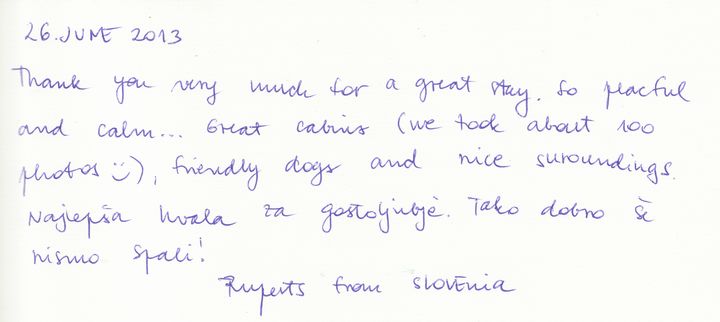 26. JUNE 2013
Thank you very much for a great stay. So peacful
and calm... Great cabins (we took about 100
photos :)), friendly dogs and nice suroundings.
Najlepša hvala za gostoljubje. Tako dobro še
nismo spali!
Ruperts from SLOVENIA